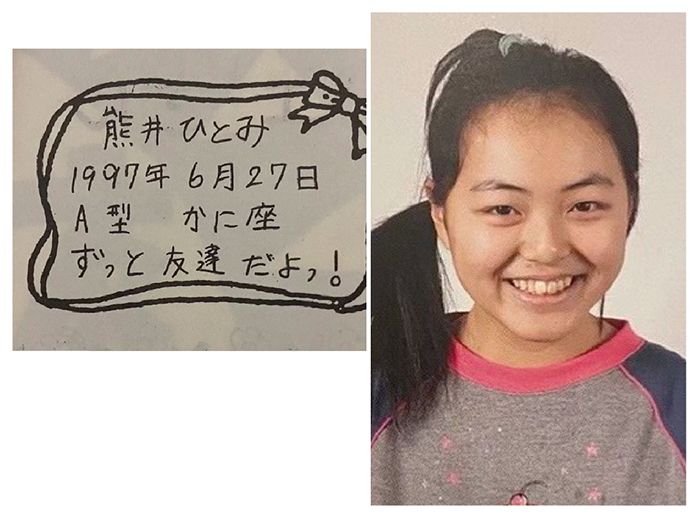 熊井 ひとみ
1997年 6月27日
A型 かに座
ずっと 友達 だよっ!